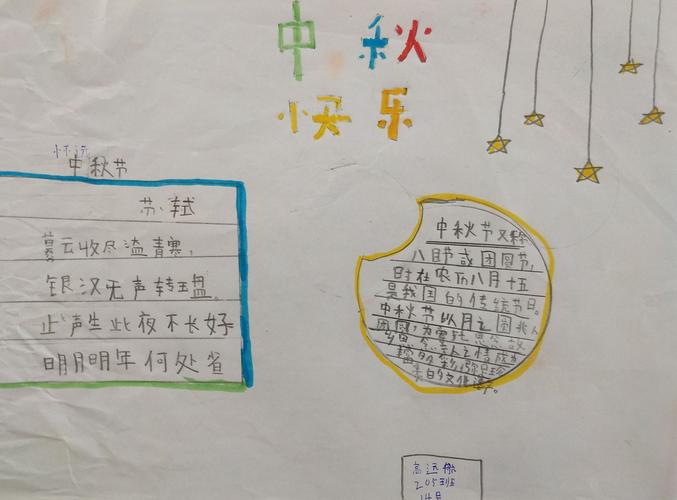 中秋
快乐
中秋节
苏轼
暮云收尽溢青寒,
银汉无声转玉盘。
此声生此夜不长好
明月明年何处省
中秋节又称
八月节或团圆节,
时在农历八月十五
是我国的传统节日。
中秋节以月之圆兆人
团圆,为寄托思念故
乡,思念亲人之情,成为
富多彩,弥足珍
贵的文化遗产。
高远
205班
14号